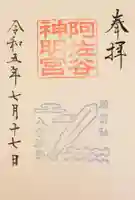 奉拝
阿佐谷
神明宮
令和五年七月十七日